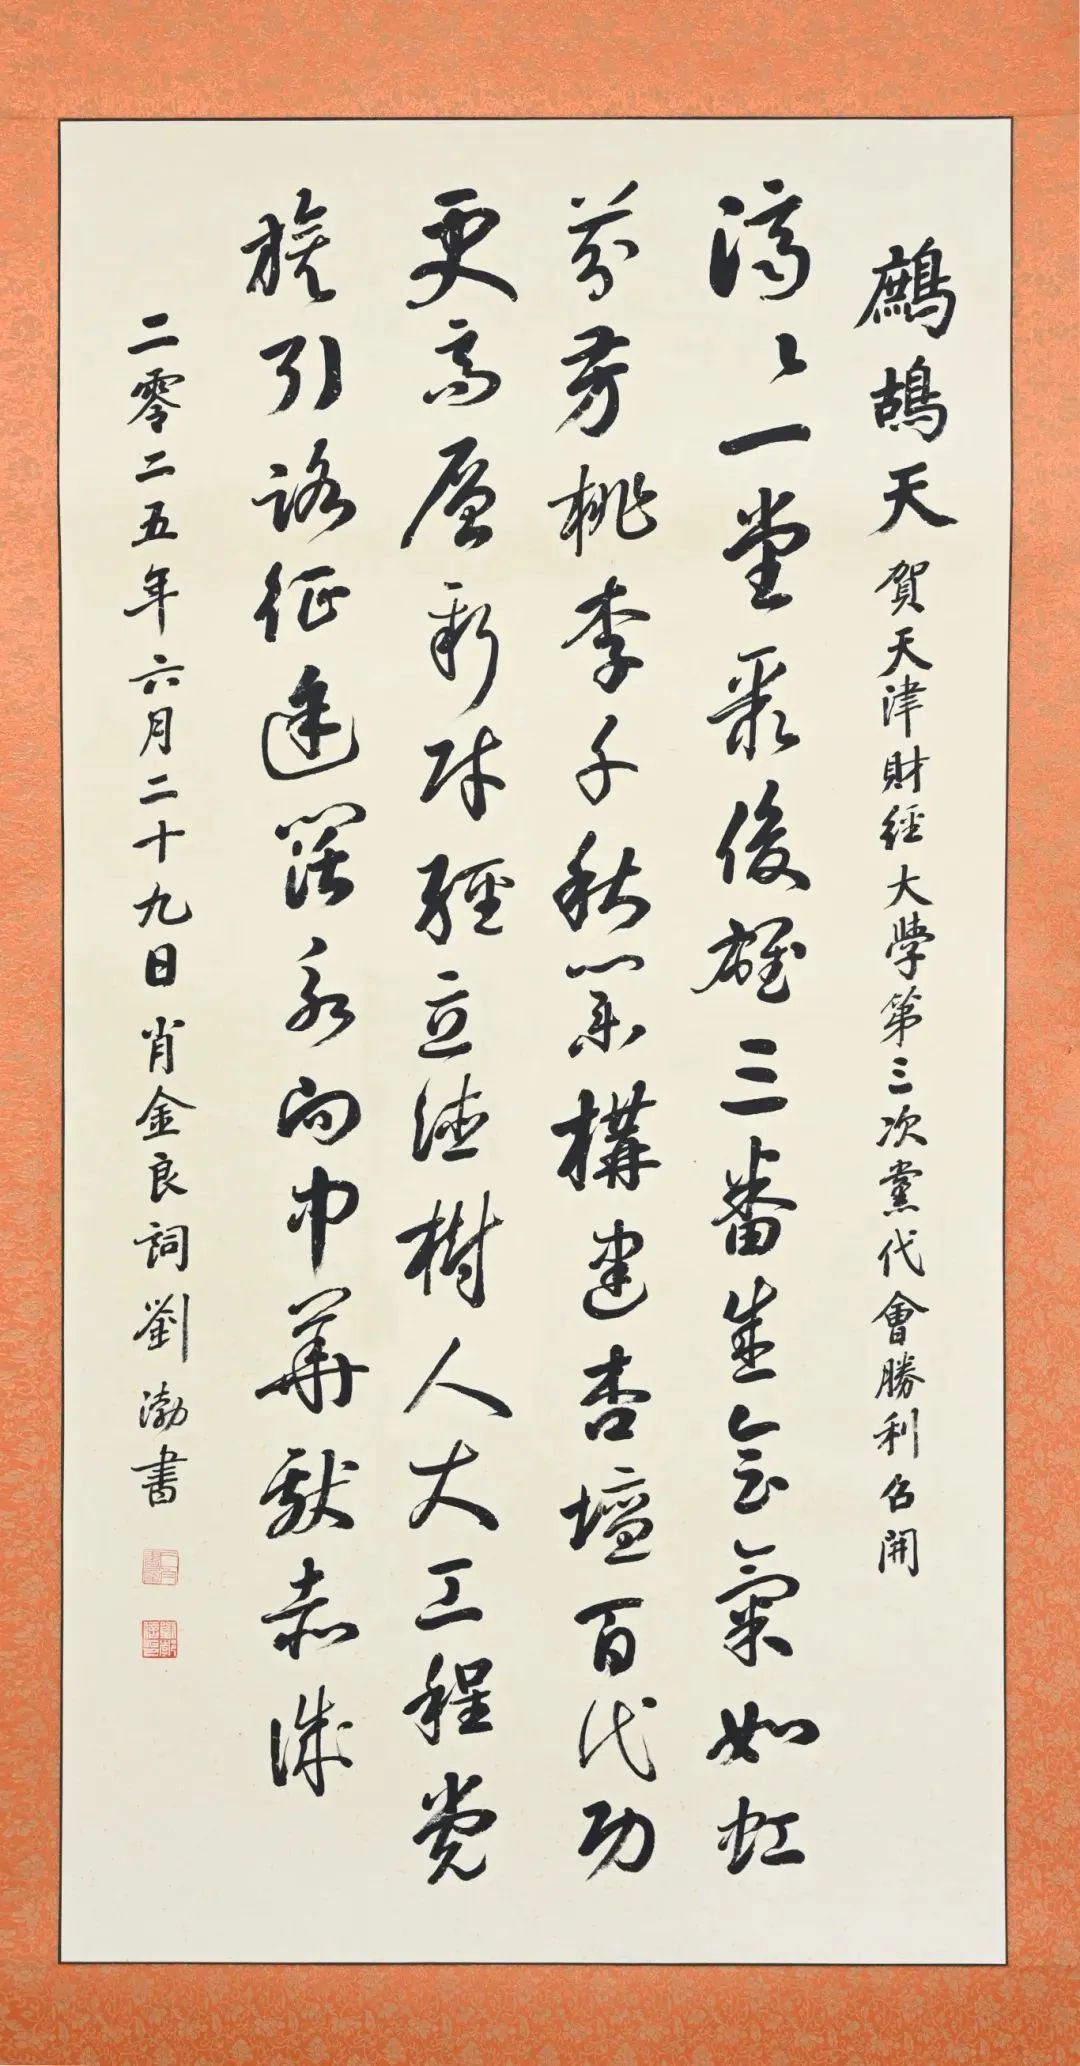 鷓鴣天 賀天津財經大學第三次黨代會勝利召開
濟々一堂聚俊雄三番盛会氣如虹
芬芳桃李千秋業構建杏壇百代功
更高層新財經立德樹人大工程党
旗引路征途闊永向中華獻赤誠
二零二五年六月二十九日肖金良詞劉渤書